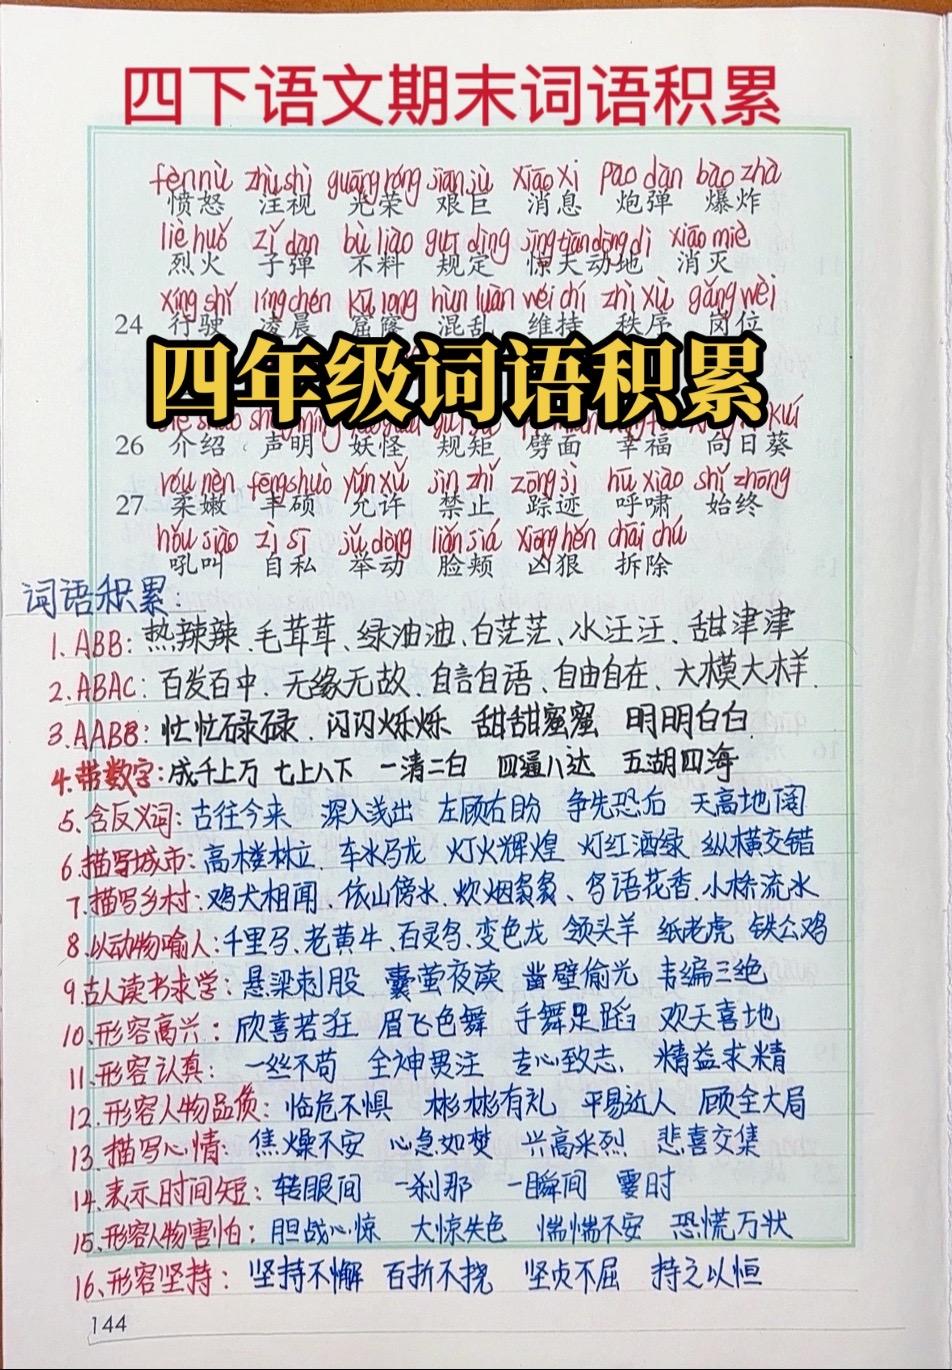 四下语文期末词语积累
fèn nù zhù shì guāng róng jiān jù xiāo xi pào dàn bào zhà
愤怒 注视 光荣 艰巨 消息 炮弹 爆炸
liè huǒ zǐ dàn bù liào guī dìng jīng tiān dòng dì xiāo miè
烈火 子弹 不料 规定 惊天动地 消灭
xíng shǐ líng chén kū long hùn luàn wéi chí zhì xù gǎng wèi
24 行驶 凌晨 窟窿 混乱 维持 秩序 岗位
四年级词语积累
26 介绍 声明 妖怪 规矩 劈面 幸福 向日葵
róu nèn fēng shuò yǔn xǔ jìn zhǐ zōng jì hū xiào shǐ zhōng
27 柔嫩 丰硕 允许 禁止 踪迹 呼啸 始终
hǒu jiào zì sī jǔ dòng liǎn jiá xiōng hěn chāi chú
吼叫 自私 举动 脸颊 凶狠 拆除
词语积累:
1. ABB: 热辣辣、毛茸茸、绿油油、白茫茫、水汪汪、甜津津
2. ABAC: 百发百中、无缘无故、自言自语、自由自在、大模大样.
3. AABB: 忙忙碌碌、闪闪烁烁 甜甜蜜蜜 明明白白.
4. 带数字: 成千上万 七上八下 一清二白 四通八达 五湖四海
5. 含反义词: 古往今来 深入浅出 左顾右盼 争先恐后 天高地阔
6. 描写城市: 高楼林立、车水马龙 灯火辉煌 灯红酒绿 纵横交错
7. 描写乡村: 鸡犬相闻、依山傍水、炊烟袅袅、鸟语花香、小桥流水
8. 以动物喻人: 千里马、老黄牛、百灵鸟、变色龙 领头羊 纸老虎 铁公鸡
9. 古人读书求学: 悬梁刺股 囊萤夜读 凿壁偷光 韦编三绝
10. 形容高兴: 欣喜若狂 眉飞色舞 手舞足蹈 欢天喜地
11. 形容认真: 一丝不苟 全神贯注 专心致志、 精益求精
12. 形容人物品质: 临危不惧 彬彬有礼 平易近人 顾全大局
13. 描写心情: 焦燥不安 心急如焚 兴高采烈 悲喜交集
14. 表示时间短: 转眼间 一刹那 一瞬间 霎时
15. 形容人物害怕: 胆战心惊 大惊失色 惴惴不安 恐慌万状
16. 形容坚持: 坚持不懈 百折不挠 坚贞不屈 持之以恒
144